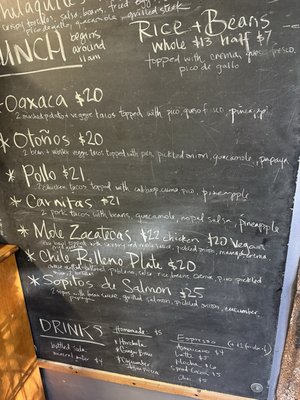 Chilaquiles
crispy tortillas, salsa, beans, fried egg
pico de gallo, guacamole + grilled steak
Rice + Beans
whole $13 half $7
topped with crema, queso fresco,
pico de gallo
UNCH begins
around
11am
Oaxaca $20
2 mashed potato + veggie tacos topped with pico, queso fresco, pineapple
* Otoños $20
2 bean + veggie tacos topped with pickled onion, guacamole, papaya
* Pollo $21
2 chicken tacos topped with cabbage, crema, pico, pineapple
* Carnitas $21
2 pork tacos with beans, guacamole, nopal salsa, pineapple
* Mole Zacatecas $22 chicken $20 vegan
* Chile Relleno Plate $20
* Sopitos de Salmon $25
2 sopes with bean sauce, grilled salmon, pickled onion, cucumber,
DRINKS
bottled soda
mineral water $4
Homemade $5
Horchata
Ginger
Cucumber
Espresso
Americano $4
Latte $5
Mocha $6
Chai $5